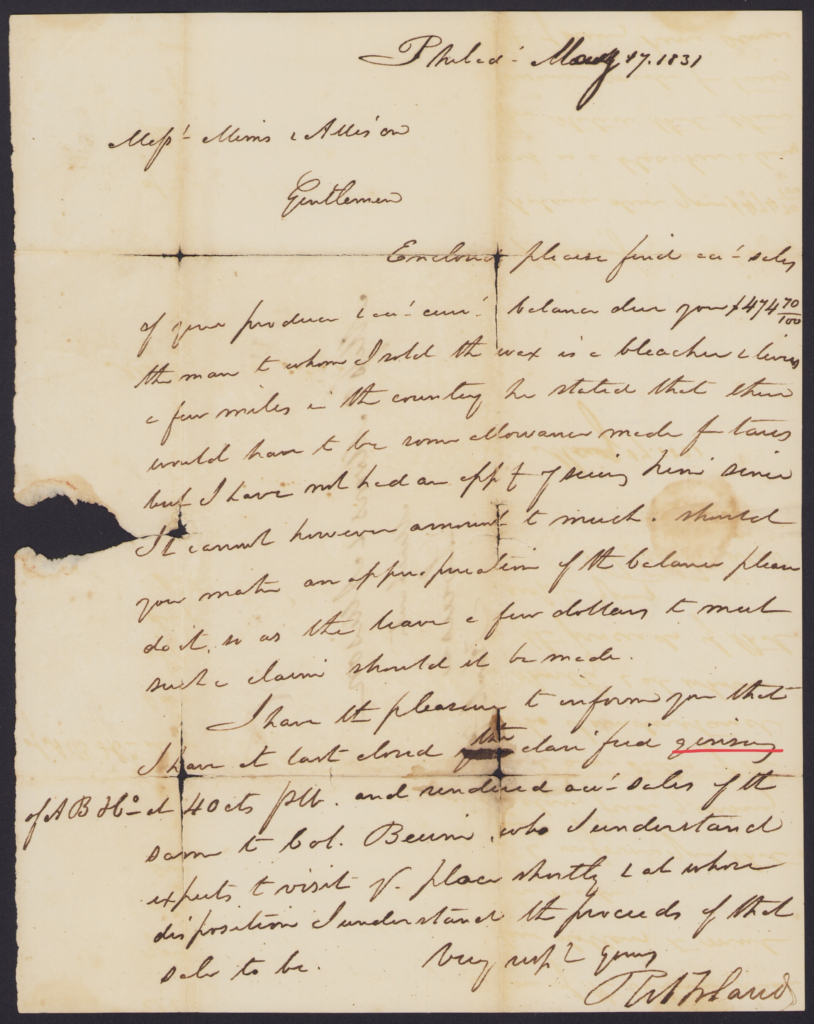 Philad.ª May 17. 1831
Mess.rs Mims & Allison
Gentlemen
Enclosed please find acc.t sales
of your produce & acc.t curr.t balance due you $474 70/100
the man to whom I sold the wax is a bleacher & lives
a few miles in the country he stated that there
would have to be some allowance made for tares
but I have not had an opp.y of seeing him since
It cannot however amount to much. should
you make an appropriation of the balance please
do it, so as the leave a few dollars to meet
such a claim should it be made.
I have the pleasure to inform you that
I have at last closed the clarified ginseng
of A B & Co at 40 cts p lb. and rendered acc.t sales of the
same to Col. who I understand
expects to visit yr. place shortly & at whose
disposition I understand the proceeds of that
sale to be. Very resp.y yours